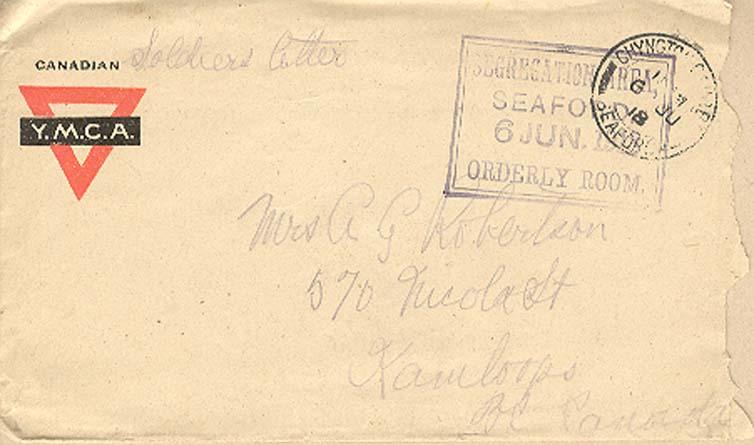 CANADIAN
Soldiers letter
Y.M.C.A.
SEGREGATION AREA,
SEAFORD
6 JUN.
ORDERLY ROOM.
6 JU
18
SEAFOR
Mrs A G Robertson
570 Nicola St
Kamloops
BC Canada